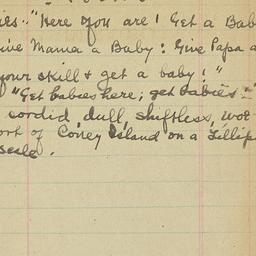 ies: "Here you are! Get a Bab
ive Mama a Baby: Give Papa a
your skill & get a baby!"
"Get babies here; get babies
sordid, dull, shiftless,
ort of Coney Island on a Lillip
scale.